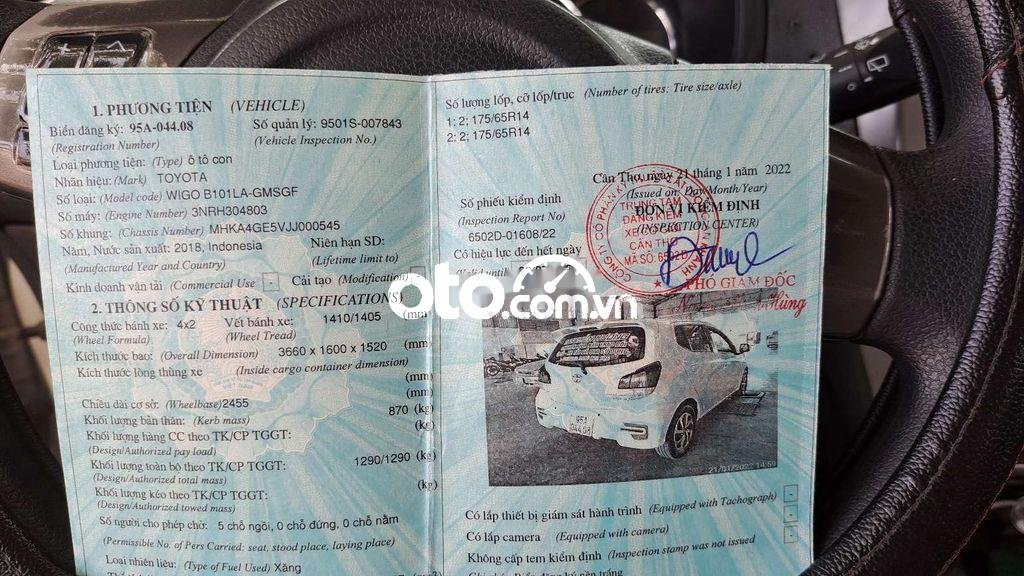 1. PHƯƠNG TIỆN (VEHICLE)
Biển đăng ký: 95A-044.08 Số quản lý: 9501S-007843
(Registration Number) (Vehicle Inspection No.)
Loại phương tiện: (Type) ô tô con
Nhãn hiệu: (Mark) TOYOTA
Số loại: (Model code) WIGO B101LA-GMSGF
Số máy: (Engine Number) 3NRH304803
Số khung: (Chassis Number) MHKA4GE5VJJ000545
Năm, Nước sản xuất: 2018, Indonesia Niên hạn SD:
(Manufactured Year and Country) (Lifetime limit to)
Kinh doanh vận tải (Commercial Use) Cải tạo (Modification)
2. THÔNG SỐ KỸ THUẬT (SPECIFICATIONS)
Công thức bánh xe: 4x2 Vết bánh xe: 1410/1405 (mm)
(Wheel Formula) (Wheel Tread)
Kích thước bao: (Overall Dimension) 3660 x 1600 x 1520 (mm)
Kích thước lòng thùng xe (Inside cargo container dimension)
(mm)
Chiều dài cơ sở: (Wheelbase) 2455 (mm)
Khối lượng bản thân: (Kerb mass) 870 (kg)
Khối lượng hàng CC theo TK/CP TGGT: (kg)
(Design/Authorized pay load)
Khối lượng toàn bộ theo TK/CP TGGT: 1290/1290 (kg)
(Design/Authorized total mass)
Khối lượng kéo theo TK/CP TGGT: (kg)
(Design/Authorized towed mass)
Số người cho phép chở: 5 chỗ ngồi, 0 chỗ đứng, 0 chỗ nằm
(Permissible No. of Pers Carried: seat, stood place, laying place)
Loại nhiên liệu: (Type of Fuel Used) Xăng
Số lượng lốp, cỡ lốp/trục (Number of tires; Tire size/axle)
1: 2; 175/65R14
2: 2; 175/65R14
Cần Thơ, ngày 21 tháng 1 năm 2022
(Issued on: Day/Month/Year)
Số phiếu kiểm định ĐƠN VỊ KIỂM ĐỊNH
(Inspection Report No) (INSPECTION CENTER)
6502D-01608/22
Có hiệu lực đến hết ngày
TRUNG TÂM
ĐĂNG KIỂM
XE CƠ GIỚI
CẦN THƠ
MÃ SỐ: 6502D
PHÓ GIÁM ĐỐC
Hùng
oto.com.vn
95A
044.08
21/01/2022 14:59
Có lắp thiết bị giám sát hành trình (Equipped with Tachograph) -
Có lắp camera (Equipped with camera) -
Không cấp tem kiểm định (Inspection stamp was not issued